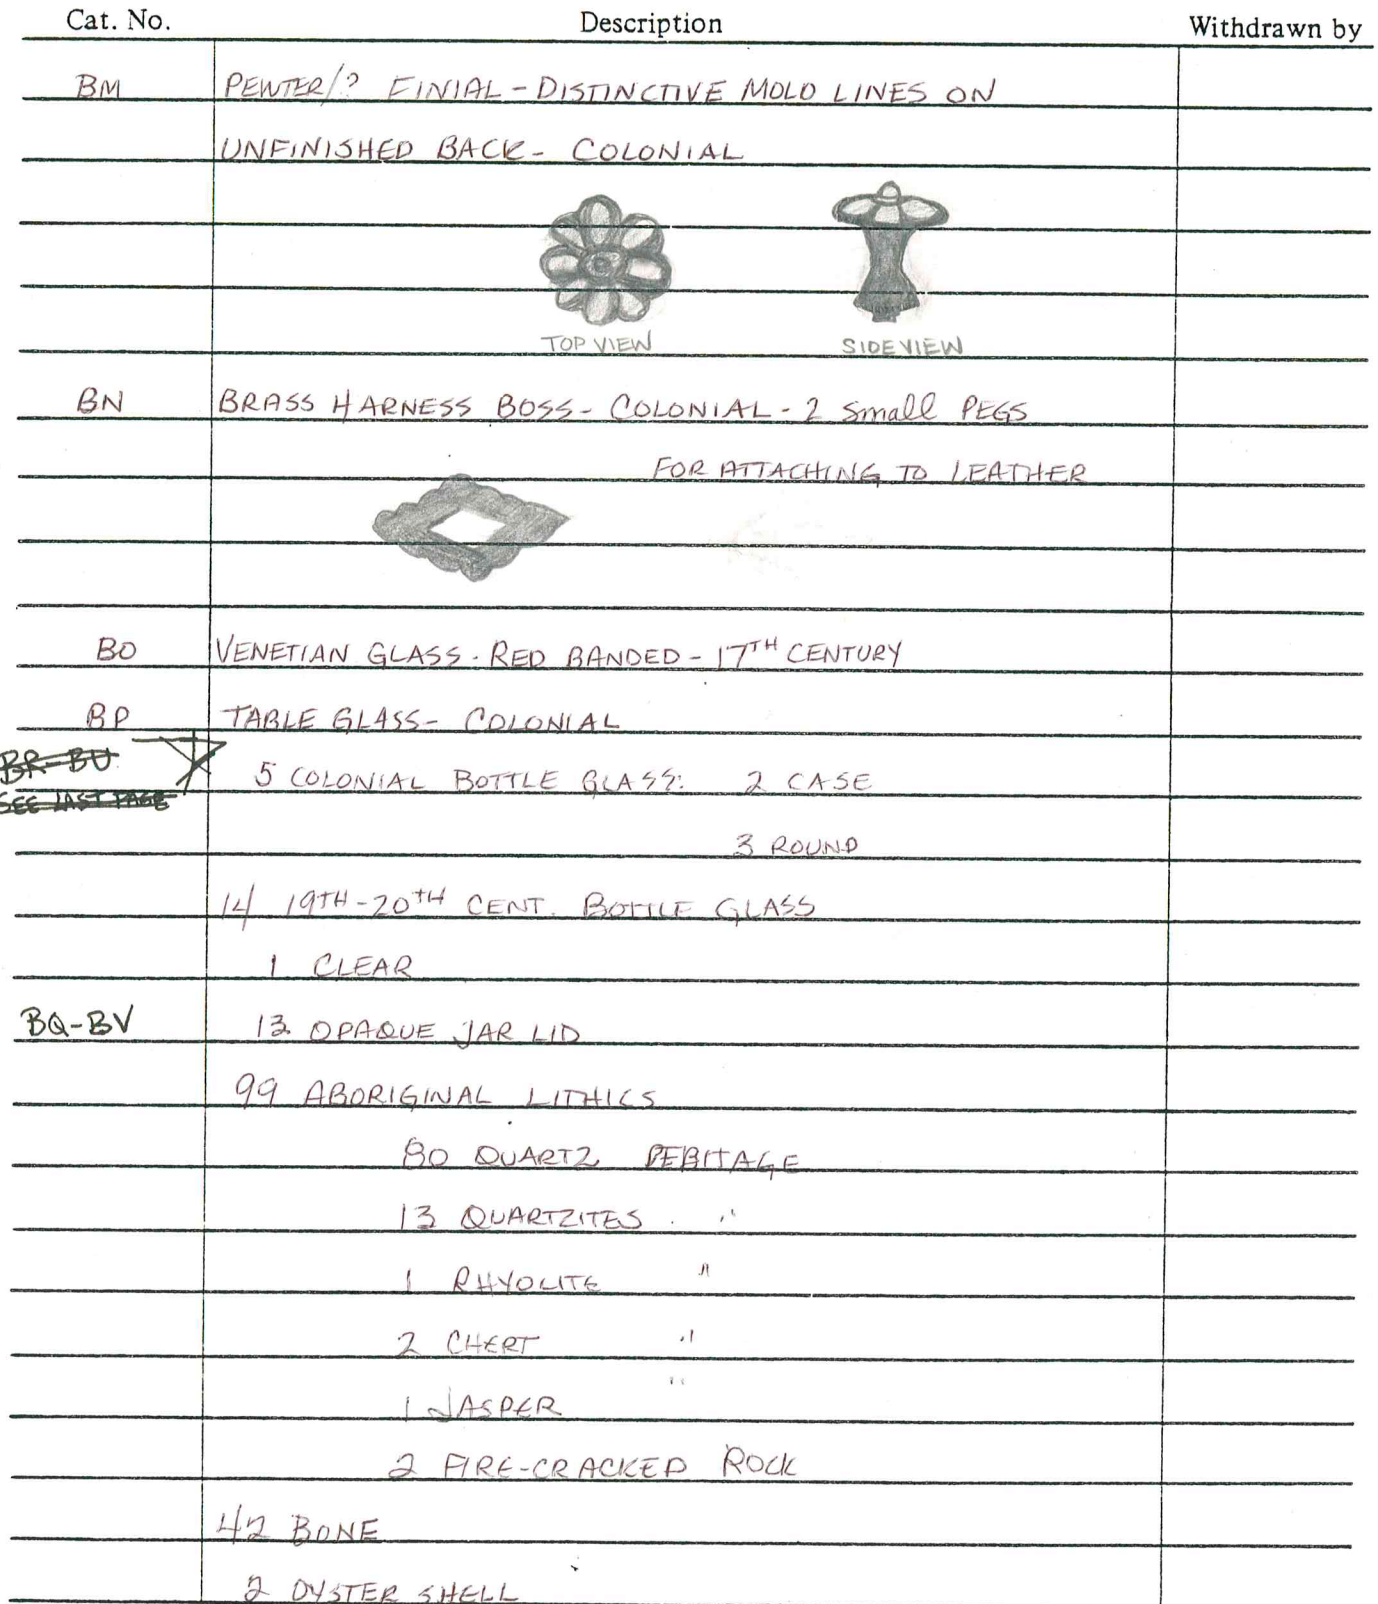 Cat. No. Description Withdrawn by
BM PEWTER/? FINIAL - DISTINCTIVE MOLD LINES ON
UNFINISHED BACK - COLONIAL
TOP VIEW SIDE VIEW
BN BRASS HARNESS BOSS - COLONIAL - 2 small PEGS
FOR ATTACHING TO LEATHER
BO VENETIAN GLASS - RED BANDED - 17TH CENTURY
BP TABLE GLASS - COLONIAL
BR-BU 5 COLONIAL BOTTLE GLASS: 2 CASE
SEE LAST PAGE
3 ROUND
14 19TH-20TH CENT. BOTTLE GLASS
1 CLEAR
BQ-BV 13 OPAQUE JAR LID
99 ABORIGINAL LITHICS
80 QUARTZ DEBITAGE
13 QUARTZITES "
1 RHYOLITE "
2 CHERT "
1 JASPER "
2 FIRE-CRACKED ROCK
42 BONE
2 OYSTER SHELL